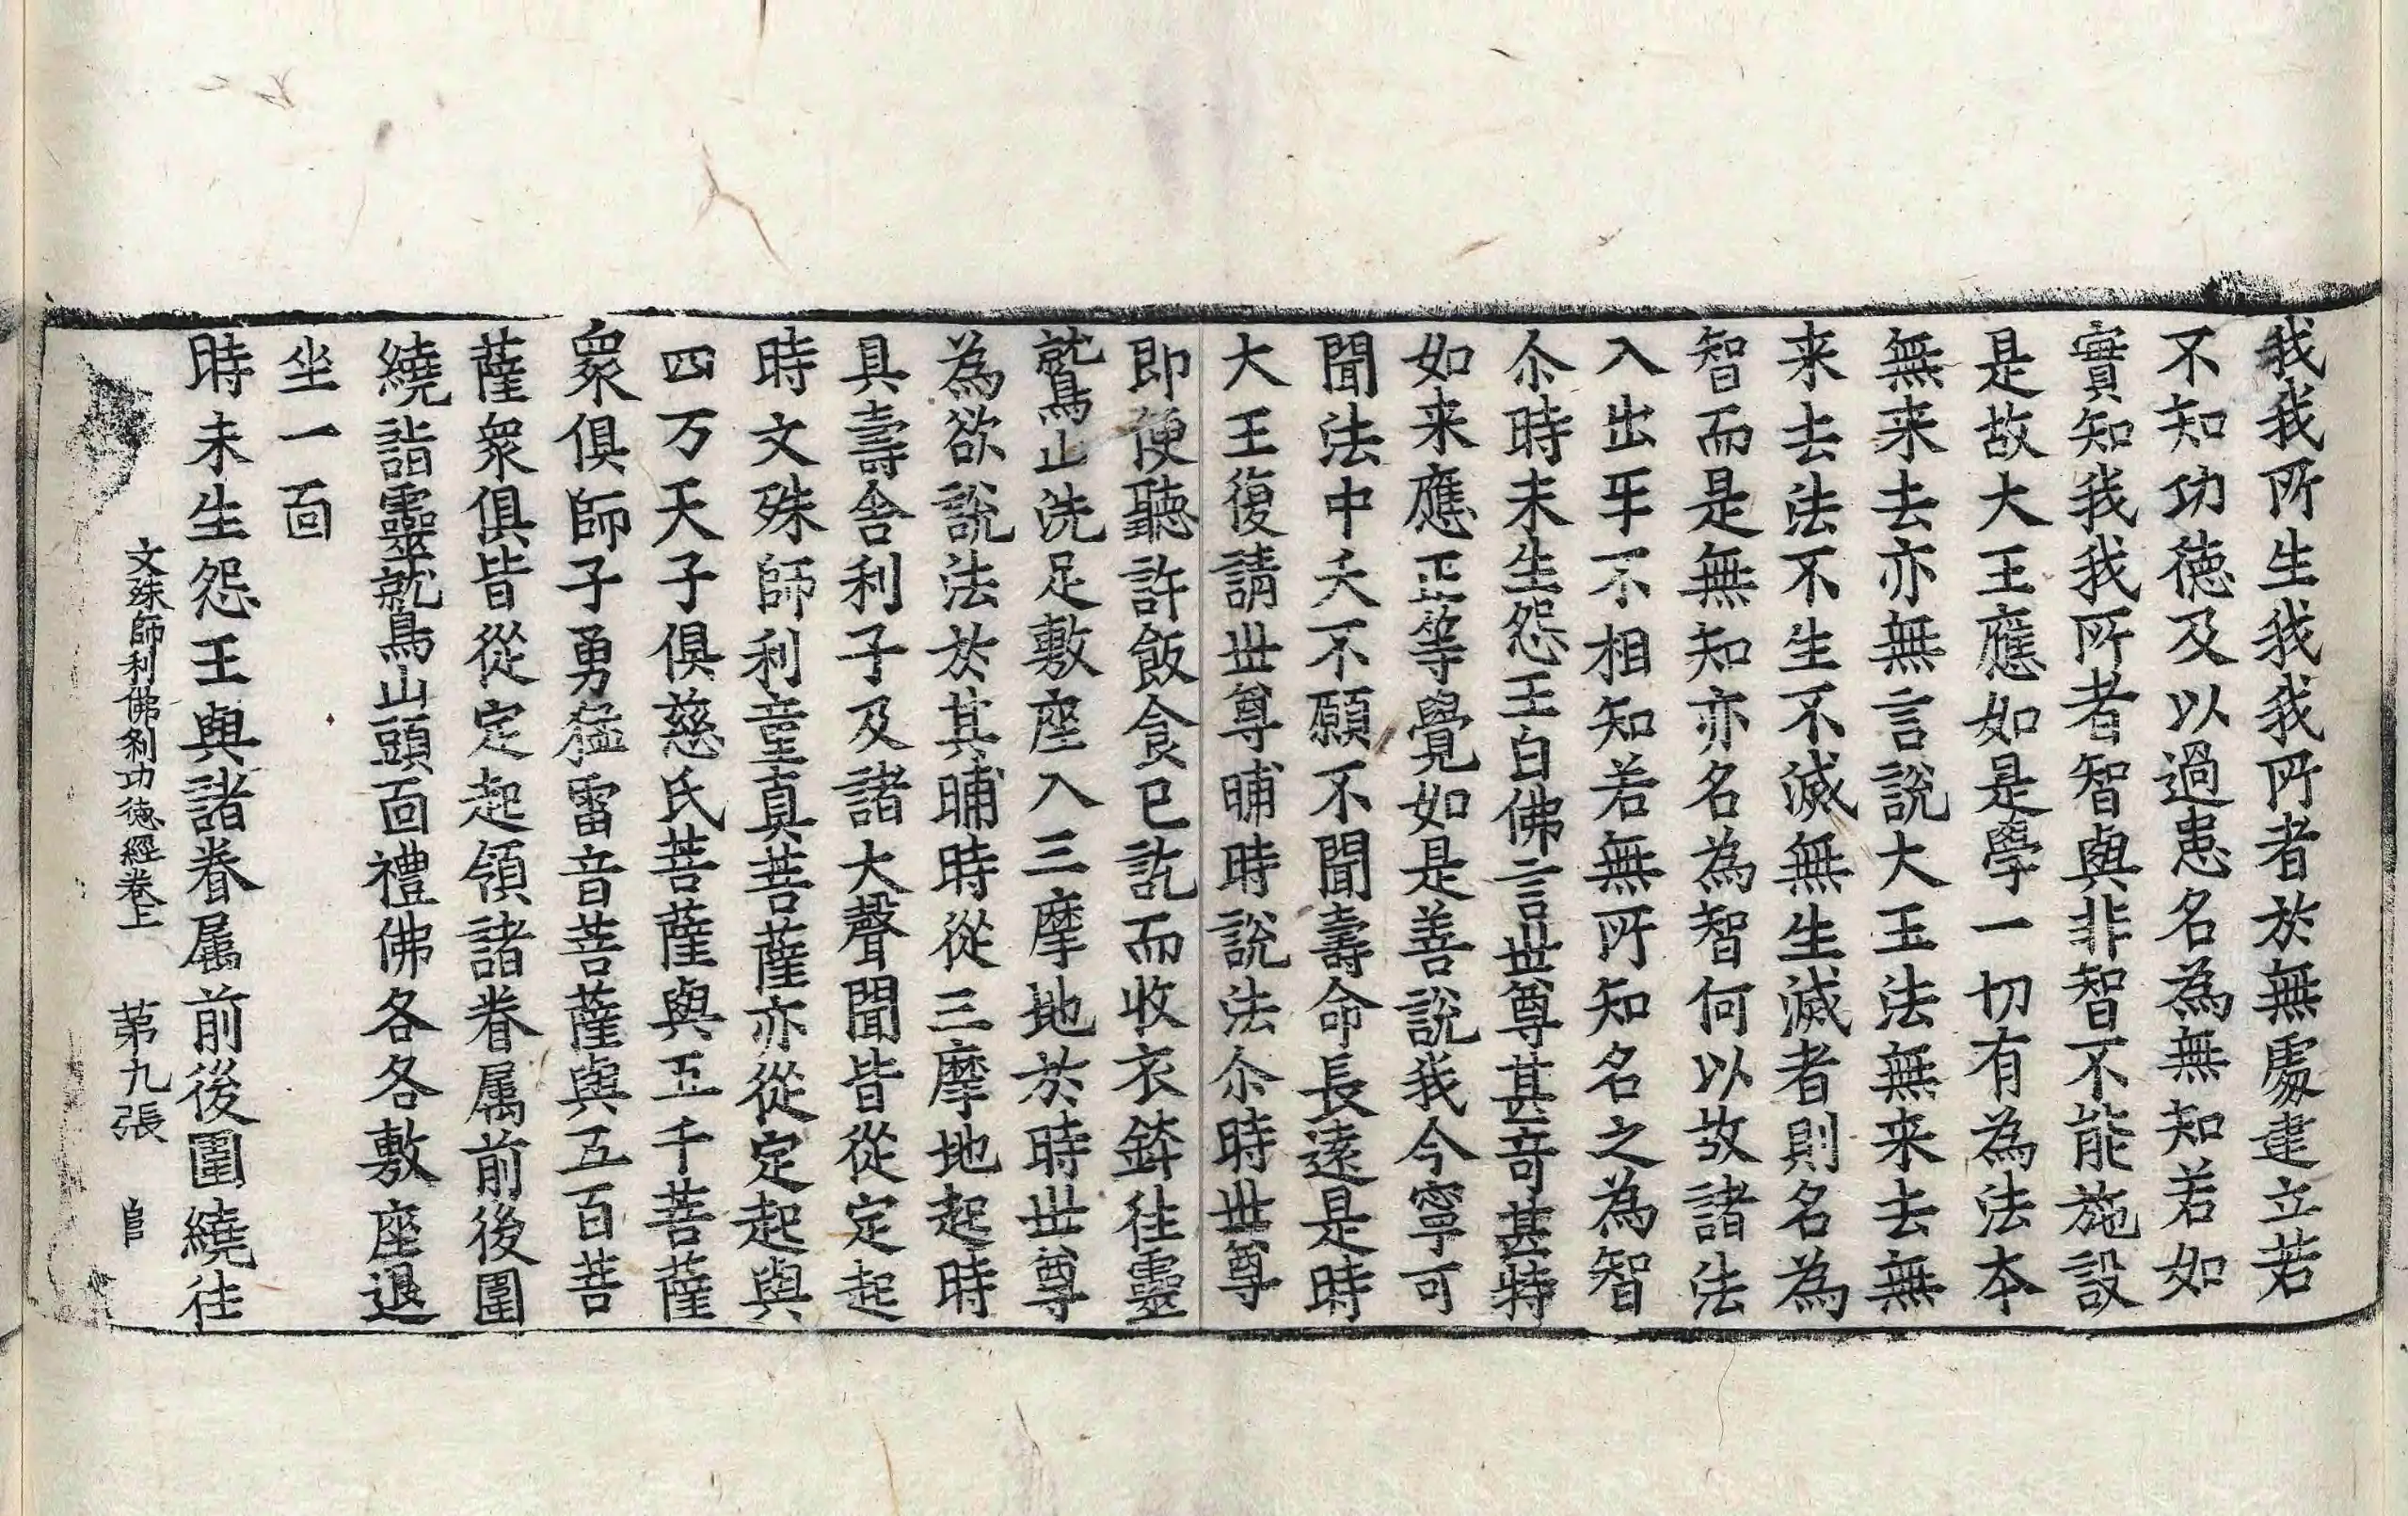 我我所生我我所者於無處建立若
不知功徳及以過患名為無知若如
實知我我所者智與非智不能施設
是故大王應如是學一切有為法本
無来去亦無言說大王法無来去無
来去法不生不滅無生滅者則名為
智而是無知亦名為智何以故諸法
入出㸦不相知若無所知名之為智
尒時未生怨王白佛言世尊甚竒甚特
如来應正等覺如是善說我今寧可
聞法中夭不願不聞壽命長逺是時
大王復請世尊晡時說法尒時世尊
即便聽許飯食已訖而收衣鉢徃靈
鷲山洗足敷座入三摩地於時世尊
為欲說法於其晡時從三摩地起時
具壽舎利子及諸大聲聞皆從定起
時文殊師利童真菩薩亦從定起與
四万天子俱慈氏菩薩與五千菩薩
衆俱師子勇猛雷音菩薩與五百菩
薩衆俱皆從定起領諸眷属前後圍
繞詣靈鷲山頭面禮佛各各敷座退
坐一面
時未生怨王與諸眷属前後圍繞徃
文殊師利佛刹功徳經卷上　第九張